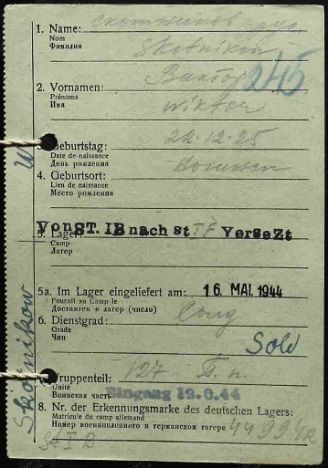 1. Name:
Nom
Фамилия
Skotnikow
2. Vornamen:
Prénoms
Имя
Виктор
245
Wiktor
3. Geburtstag:
Date de naissance
День рождения
22.12.25
4. Geburtsort:
Lieu de naissance
Место рождения
Von ST. IB nach st IF Versezt
5. Lager:
Camp
Лагер
5a. Im Lager eingeliefert am: 16. MAI. 1944
Fournit au Camp le
Доставлен в лагер (число)
6. Dienstgrad:
Grade
Чин
Sold
Gruppenteil: 127
Unité
Воинская часть
Eingang 19.6.44
8. Nr. der Erkennungsmarke des deutschen Lagers:
Matricule du camp allemand
Номер военнопленного в германском лагере
Skotnikow